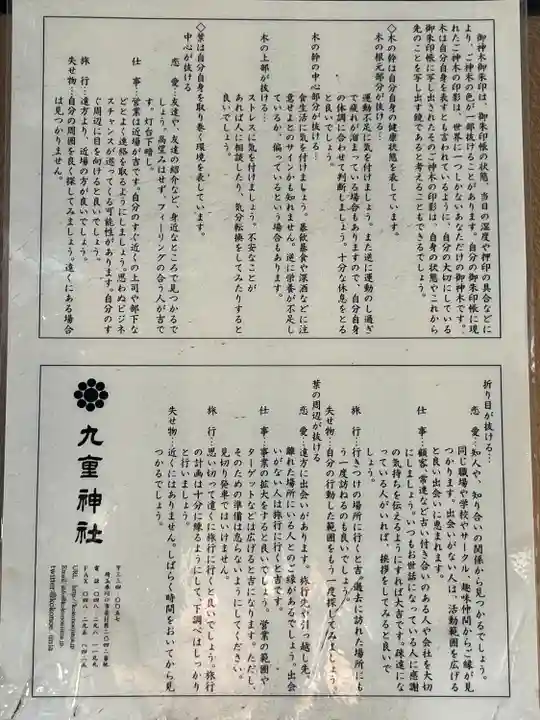 御神木御朱印は、御朱印帳の状態、当日の湿度や押印の具合などに
より、ご神木の色が一部抜けることがあります。自分の御朱印帳に現
れたご神木の印影は、世界に一つしかないあなただけの御神木です。
木は自分自身を表すとも言われているように、自分の大切にしている
御朱印帳に写し出されたそのご神木の印影は、自身の状態やこれから
先のことを写し出す鏡であると考えることもできるでしょう。
◇木の幹は自分自身の健康状態を表しています。
木の根元部分が抜ける…
運動不足に気を付けましょう。また逆に運動のし過ぎ
で疲れが溜まっている場合もありますので、自分自身
の体調に合わせて判断しましょう。十分な休息をとる
と良いでしょう。
木の幹の中心部分が抜ける…
食生活に気を付けましょう。暴飲暴食や深酒などに注
意せよとのサインかも知れません。逆に栄養が不足し
ているか、偏っているという場合もあります。
木の上部が抜ける…
ストレスに気を付けましょう。不安なことが
あれば人に相談したり、気分転換をしてみたりすると
良いでしょう。
◇葉は自分自身を取り巻く環境を表しています。
中心が抜ける
恋 愛…友達や、友達の紹介など、身近なところで見つかるで
しょう。高望みはせず、フィーリングの合う人が吉で
す。灯台下暗し。
仕 事…営業は近場が吉です。自分のすぐ近くの上司や部下な
どとよく連絡を取るようにしましょう。思わぬビジネ
スチャンスが巡ってくる可能性があります。自分のす
ぐ周辺に目を向けると良いでしょう。
旅 行…遠方より、近場の方が良いでしょう。
失せ物…自分の周囲を良く探してみましょう。遠くにある場合
は見つかりません。
折り目が抜ける…
恋 愛…知人や、知り合いの関係から見つかるでしょう。
同じ職場や学校やサークル、趣味仲間からご縁が見
つかります。出会いがない人は、活動範囲を広げる
と良い出会いに恵まれます。
仕 事…顧客、常連など古い付き合いのある人や会社を大切
にしましょう。いつもお世話になっている人に感謝
の気持ちを伝えるようにすれば大吉です。疎遠にな
っている人がいれば、挨拶をしてみると良いで
しょう。
旅 行…行きつけの場所に行くと吉。過去に訪れた場所にも
う一度訪ねるのも良いでしょう。
失せ物…自分の行動した範囲をもう一度探してみましょう。
葉の周辺が抜ける
恋 愛…遠方に出会いがあります。旅行先や引っ越し先、
離れた場所にいる人とのご縁があるでしょう。出会
いがない人は旅行に行くと吉です。
仕 事…事業の拡大をすると良いでしょう。営業の範囲や
ターゲットなどは広げると吉になります。ただし、
そのための準備は怠らないようにしてください。
見切り発車ではいけません。
旅 行…思い切って遠くに旅行に行くと良いでしょう。旅行
の計画は十分に練るようにして、下調べはしっかり
と行いましょう。
失せ物…近くにはありません。しばらく時間をおいてから見
つかるでしょう。
九重神社